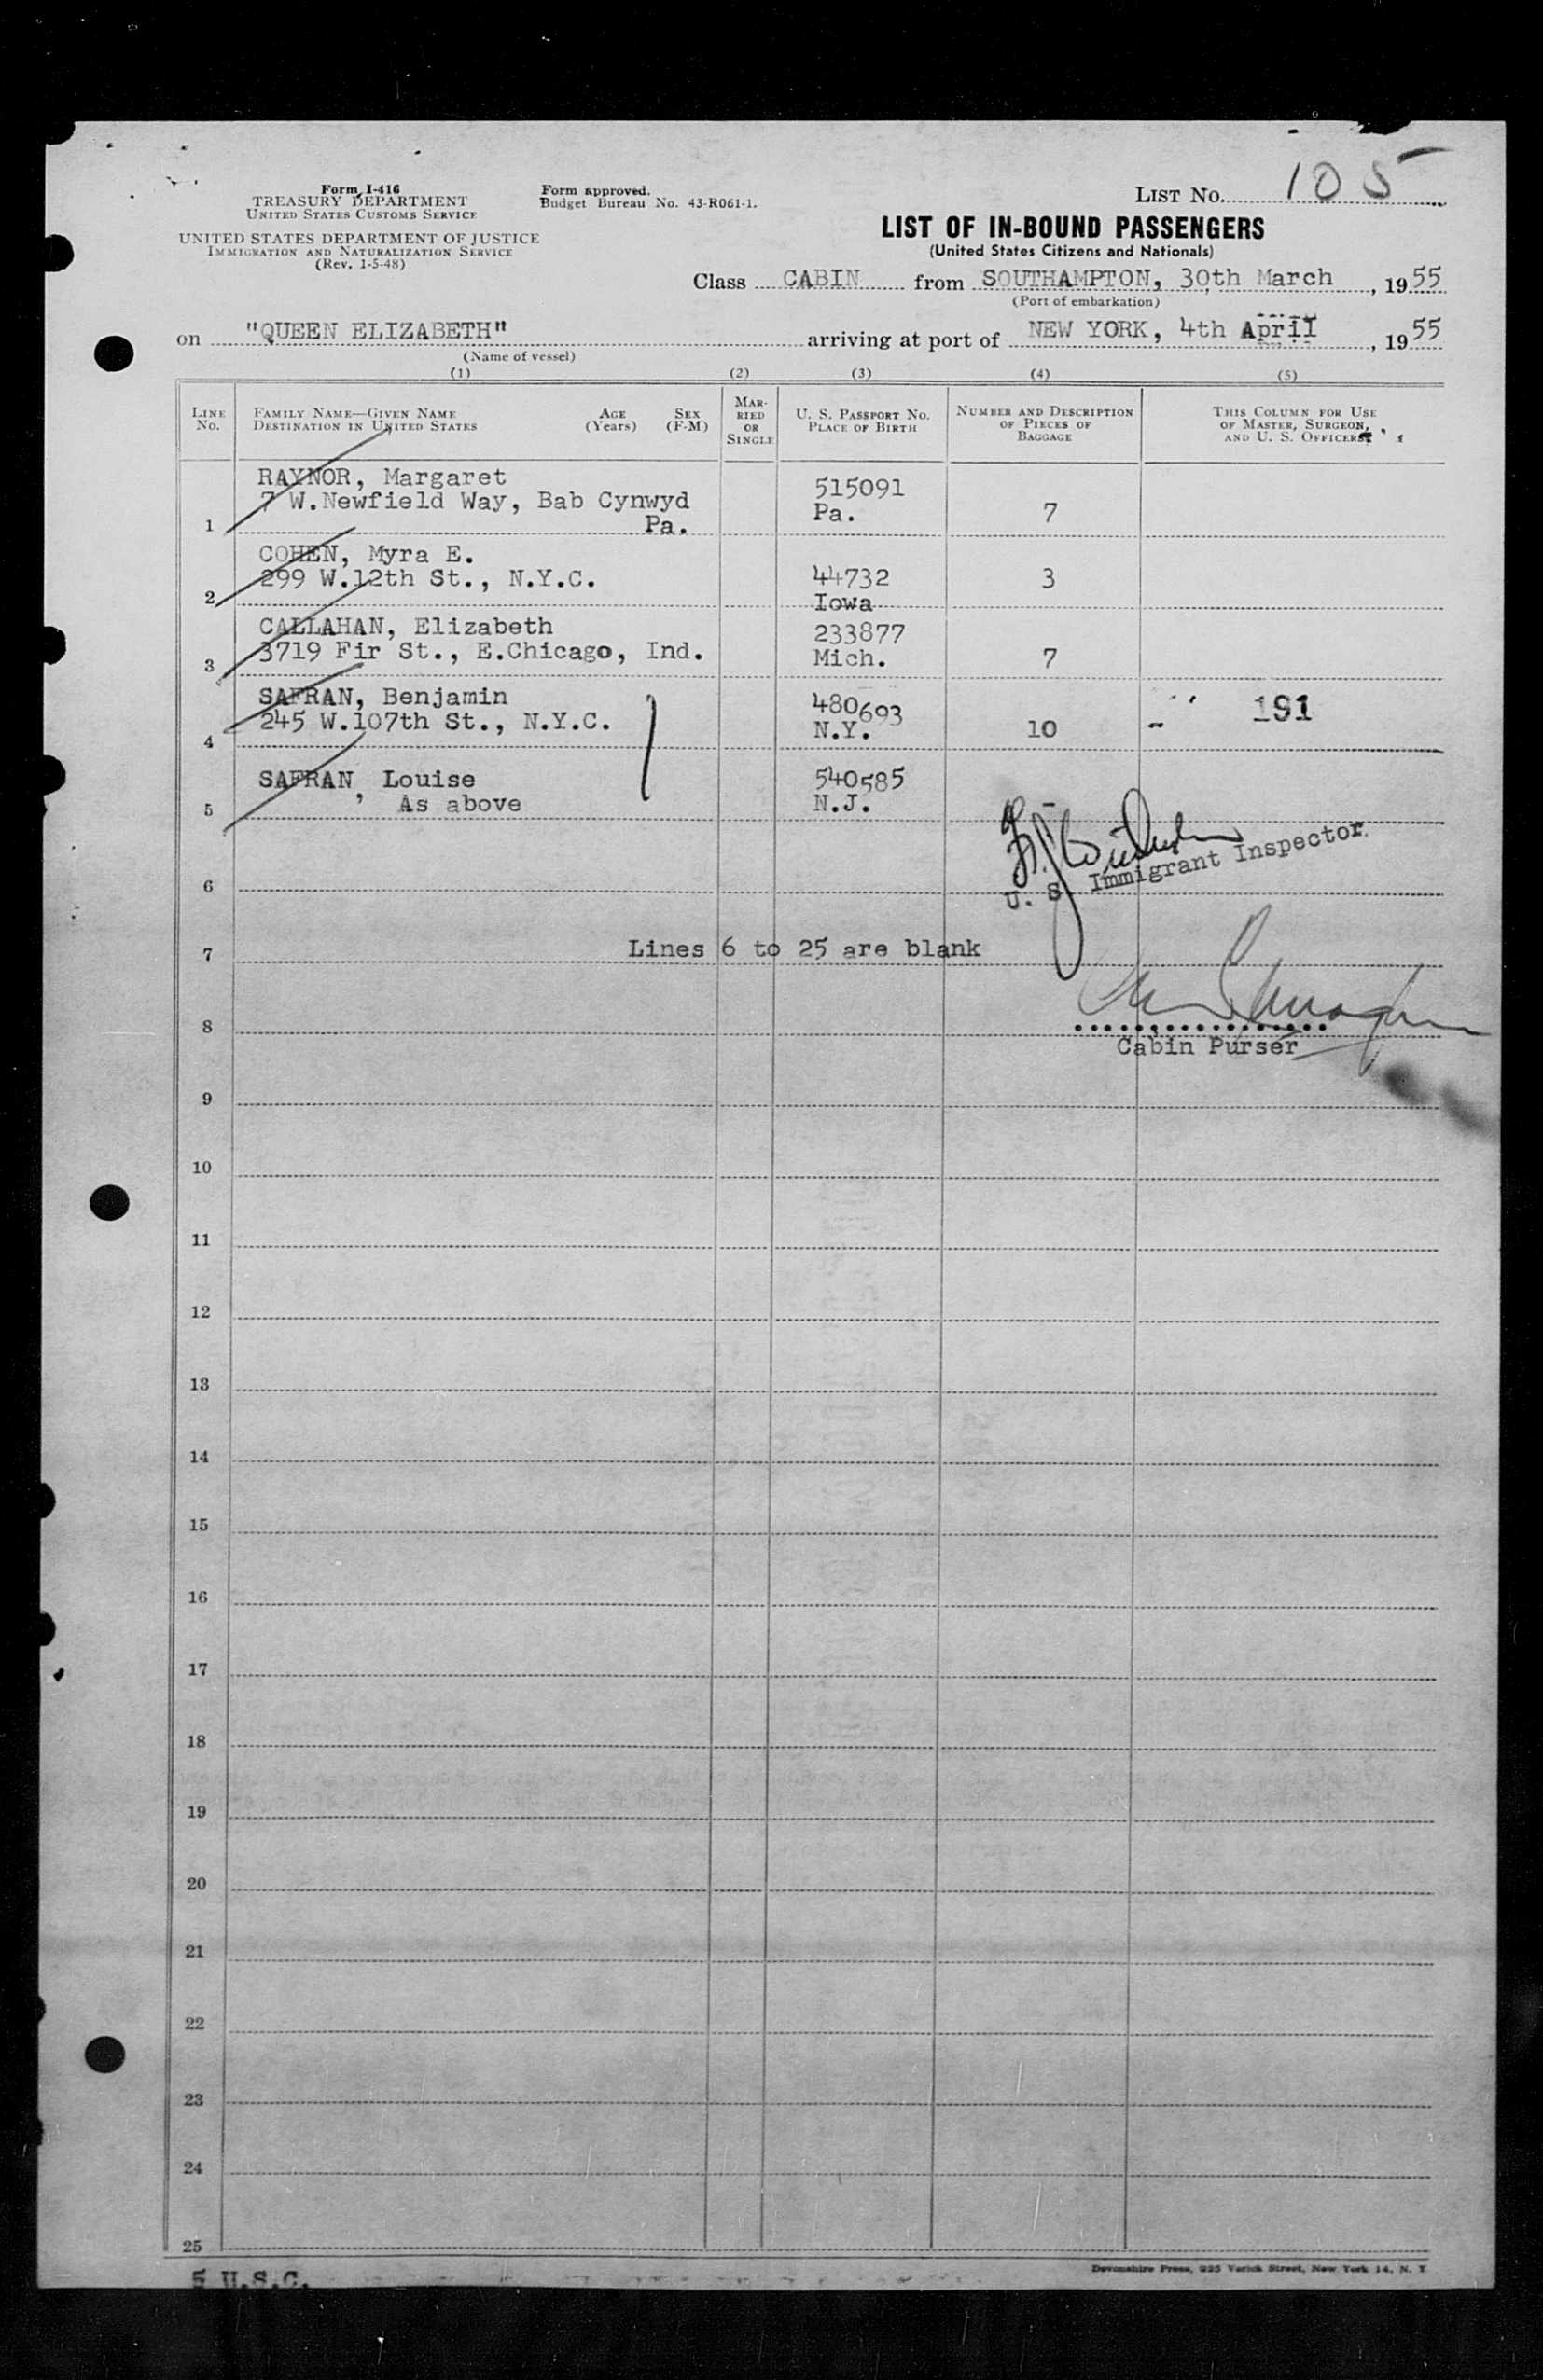 Form I-416
TREASURY DEPARTMENT
UNITED STATES CUSTOMS SERVICE
UNITED STATES DEPARTMENT OF JUSTICE
IMMIGRATION AND NATURALIZATION SERVICE
(Rev. 1-5-48)
Form approved.
Budget Bureau No. 43-R061-1.
LIST NO. 105
LIST OF IN-BOUND PASSENGERS
(United States Citizens and Nationals)
Class CABIN from SOUTHAMPTON, 30th March, 1955
(Port of embarkation)
on "QUEEN ELIZABETH" arriving at port of NEW YORK, 4th April, 1955
(Name of vessel)
(1) (2) (3) (4) (5)
LINE NO.
FAMILY NAME—GIVEN NAME
DESTINATION IN UNITED STATES
AGE (Years)
SEX (F-M)
MARRIED OR SINGLE
U. S. PASSPORT NO.
PLACE OF BIRTH
NUMBER AND DESCRIPTION
OF PIECES OF
BAGGAGE
THIS COLUMN FOR USE
OF MASTER, SURGEON,
AND U. S. OFFICERS
RAYNOR, Margaret 515091
7 W.Newfield Way, Bab Cynwyd Pa. 7
1 Pa.
COHEN, Myra E.
299 W.12th St., N.Y.C. 44732 3
2 Iowa
CALLAHAN, Elizabeth 233877
3 3719 Fir St., E.Chicago, Ind. Mich. 7
SAFRAN, Benjamin 480693 191
245 W.107th St., N.Y.C. N.Y. 10
4
SAFRAN, Louise 540585
5 As above N.J.
U. S. Immigrant Inspector.
6
7 Lines 6 to 25 are blank
8
Cabin Purser
9
10
11
12
13
14
15
16
17
18
19
20
21
22
23
24
25
5 U.S.C.
Devonshire Press, 225 Varick Street, New York 14, N. Y.